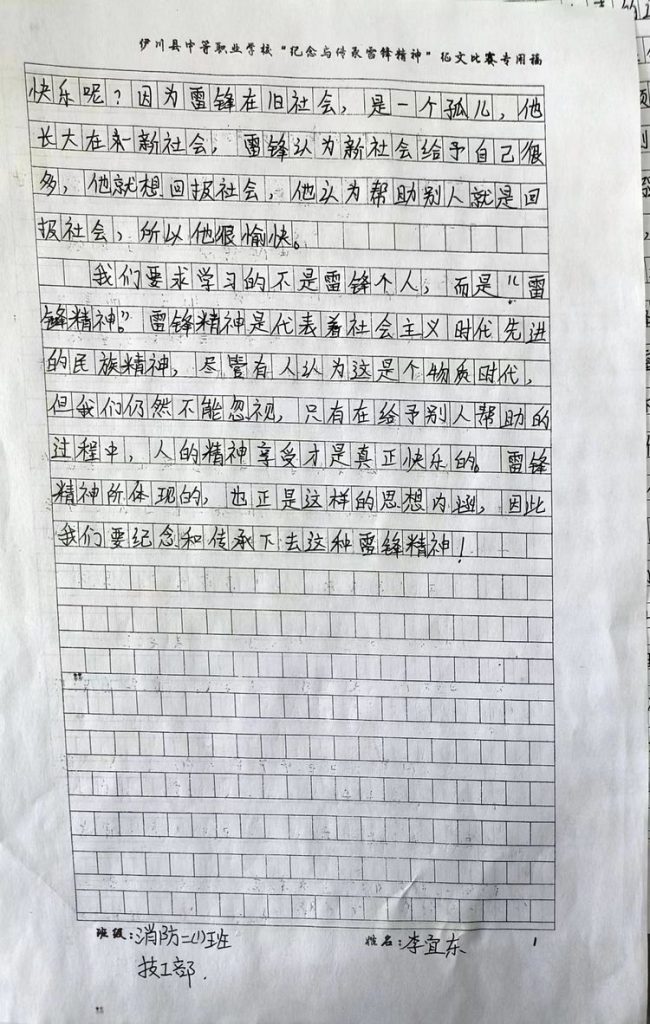 伊川县中等职业学校“纪念与传承雷锋精神”征文比赛专用稿
快乐呢？因为雷锋在旧社会，是一个孤儿，他
长大在新社会，雷锋认为新社会给予自己很
多，他就想回报社会，他认为帮助别人就是回
报社会，所以他很愉快。
我们要求学习的不是雷锋个人，而是“雷
锋精神”。雷锋精神是代表着社会主义时代先进
的民族精神，尽管有人认为这是个物质时代，
但我们仍然不能忽视，只有在给予别人帮助的
过程中，人的精神享受才是真正快乐的。雷锋
精神所体现的，也正是这样的思想内涵，因此
我们要纪念和传承下去这种雷锋精神！
班级：消防二(1)班 姓名：李宜东 1
技工部.